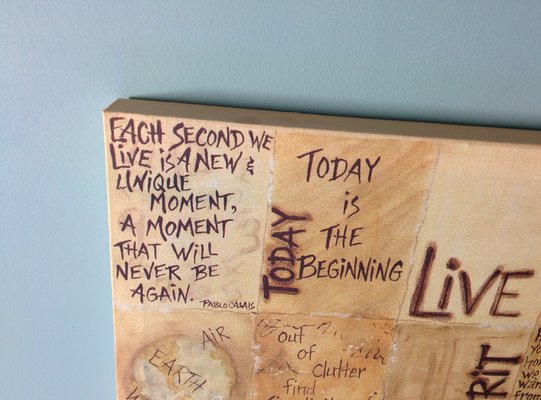 EACH SECOND WE
LIVE IS A NEW &
UNIQUE
MOMENT,
A MOMENT
THAT WILL
NEVER BE
AGAIN.
PABLO CASALS
TODAY
is
THE
BEGINNING
TODAY
LIVE
AIR
EARTH
out
of
clutter
find
RIT
we